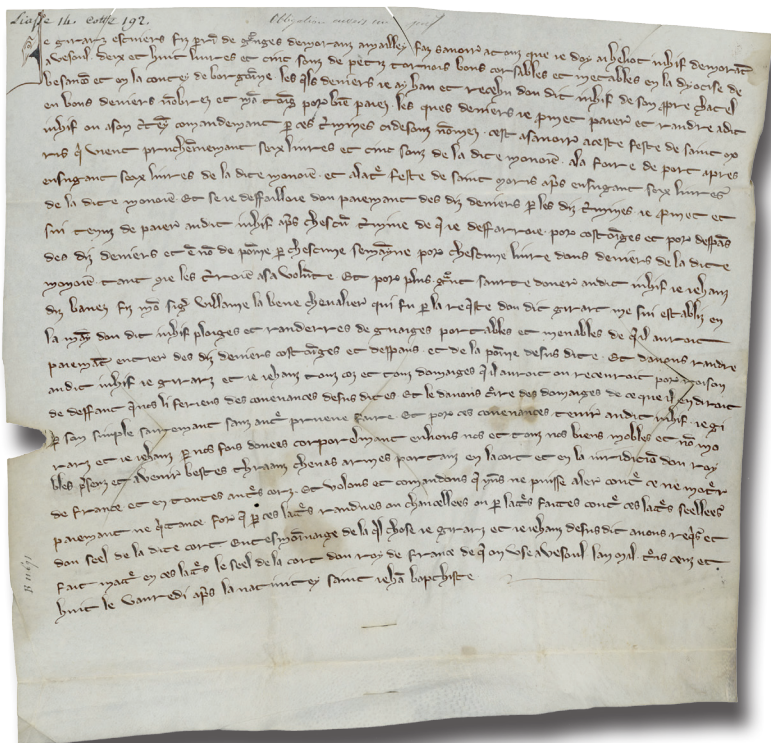 Liasse 14. cotte 192.
Obligation envers un juif
Je girarz escuiers fiz perrin de granges demoranz amailley faz sauoir a touz que ie doy a heliot iuhif demorant
a vesoul deix et huit liures et cinc souz de petiz tornois bons corsables et metables en la dyocise de
besancon et en la contey de borgoine les qls deniers ie ay hau et receu dou dit iuhif de son propre chatel
en bons deniers nombrez et por bien paiez. les ques deniers ie promet paier et randre a dit
iuhif ou a son comandemant par ces termines ci desouz nommez. cest a sauoir a ceste feste de saint mo
ris qi vient prochennemant seix liures et cinc souz de la dite monoie. a la foire de port apres
ensugant seix liures de la dite monoie. et a lautre feste de saint moris aps ensugant seix liures
de la dite monoie. Et se ie deffailloie dou paiemant des diz deniers par les diz termines ie promet et
sui tenuz de paier audit iuhif aps chescun termine de qi ie deffarroie. por costanges et por despans
des diz deniers et en nom de poinne par chescune semainne por chescune liure dous deniers de la dite
monoie tant que les terroie a sa volunte Et por plus grant saurte doner audit iuhif ie iehanz
diz banez fiz mon sign villame la bene cheualier qui fu par la requeste dou dit girart me sui establiz en
la main dou dit iuhif ploiges et randerres de guaiges portables et menables de qi il auroit
paiemant entier des diz deniers costanges et despans. et de la poinne desus dite. Et dauons randre
audit iuhif ie girarz et ie iehanz touz coz et touz domaiges qil auroit ou receuroit por raison
de deffaut quns li feriens des conuenances desus dites Et le dauons croire des domaiges de ce que il en diroit
par son simple sairemant sanz autre prueue faire. Et por ces conuenances tenir audit iuhif ie gi
rarz et ie iehanz par nos fois donees corporelmant enlions nos et touz nos biens mobles et non mo
bles presenz et auenir bestes chraanz cheuas armes portanz en la cort et en la iuridicion dou roy
de france et en toutes autres corz. Et volons et comandons que ne puisse aler contre ce ne motrer
paiemant ne quitance for que par ces latres randues ou chancellees ou par latres faites contre ces latres seellees
dou seel de la dite cort En tesmoinaige de la ql chose ie girarz et ie iehanz desus dit auons requis et
fait matre en ces latres le seel de la cort dou roy de france de qi on vse a vesoul lan mil trois cenz et
huit le vanredi aps la natiuitey saint iehan bapthiste